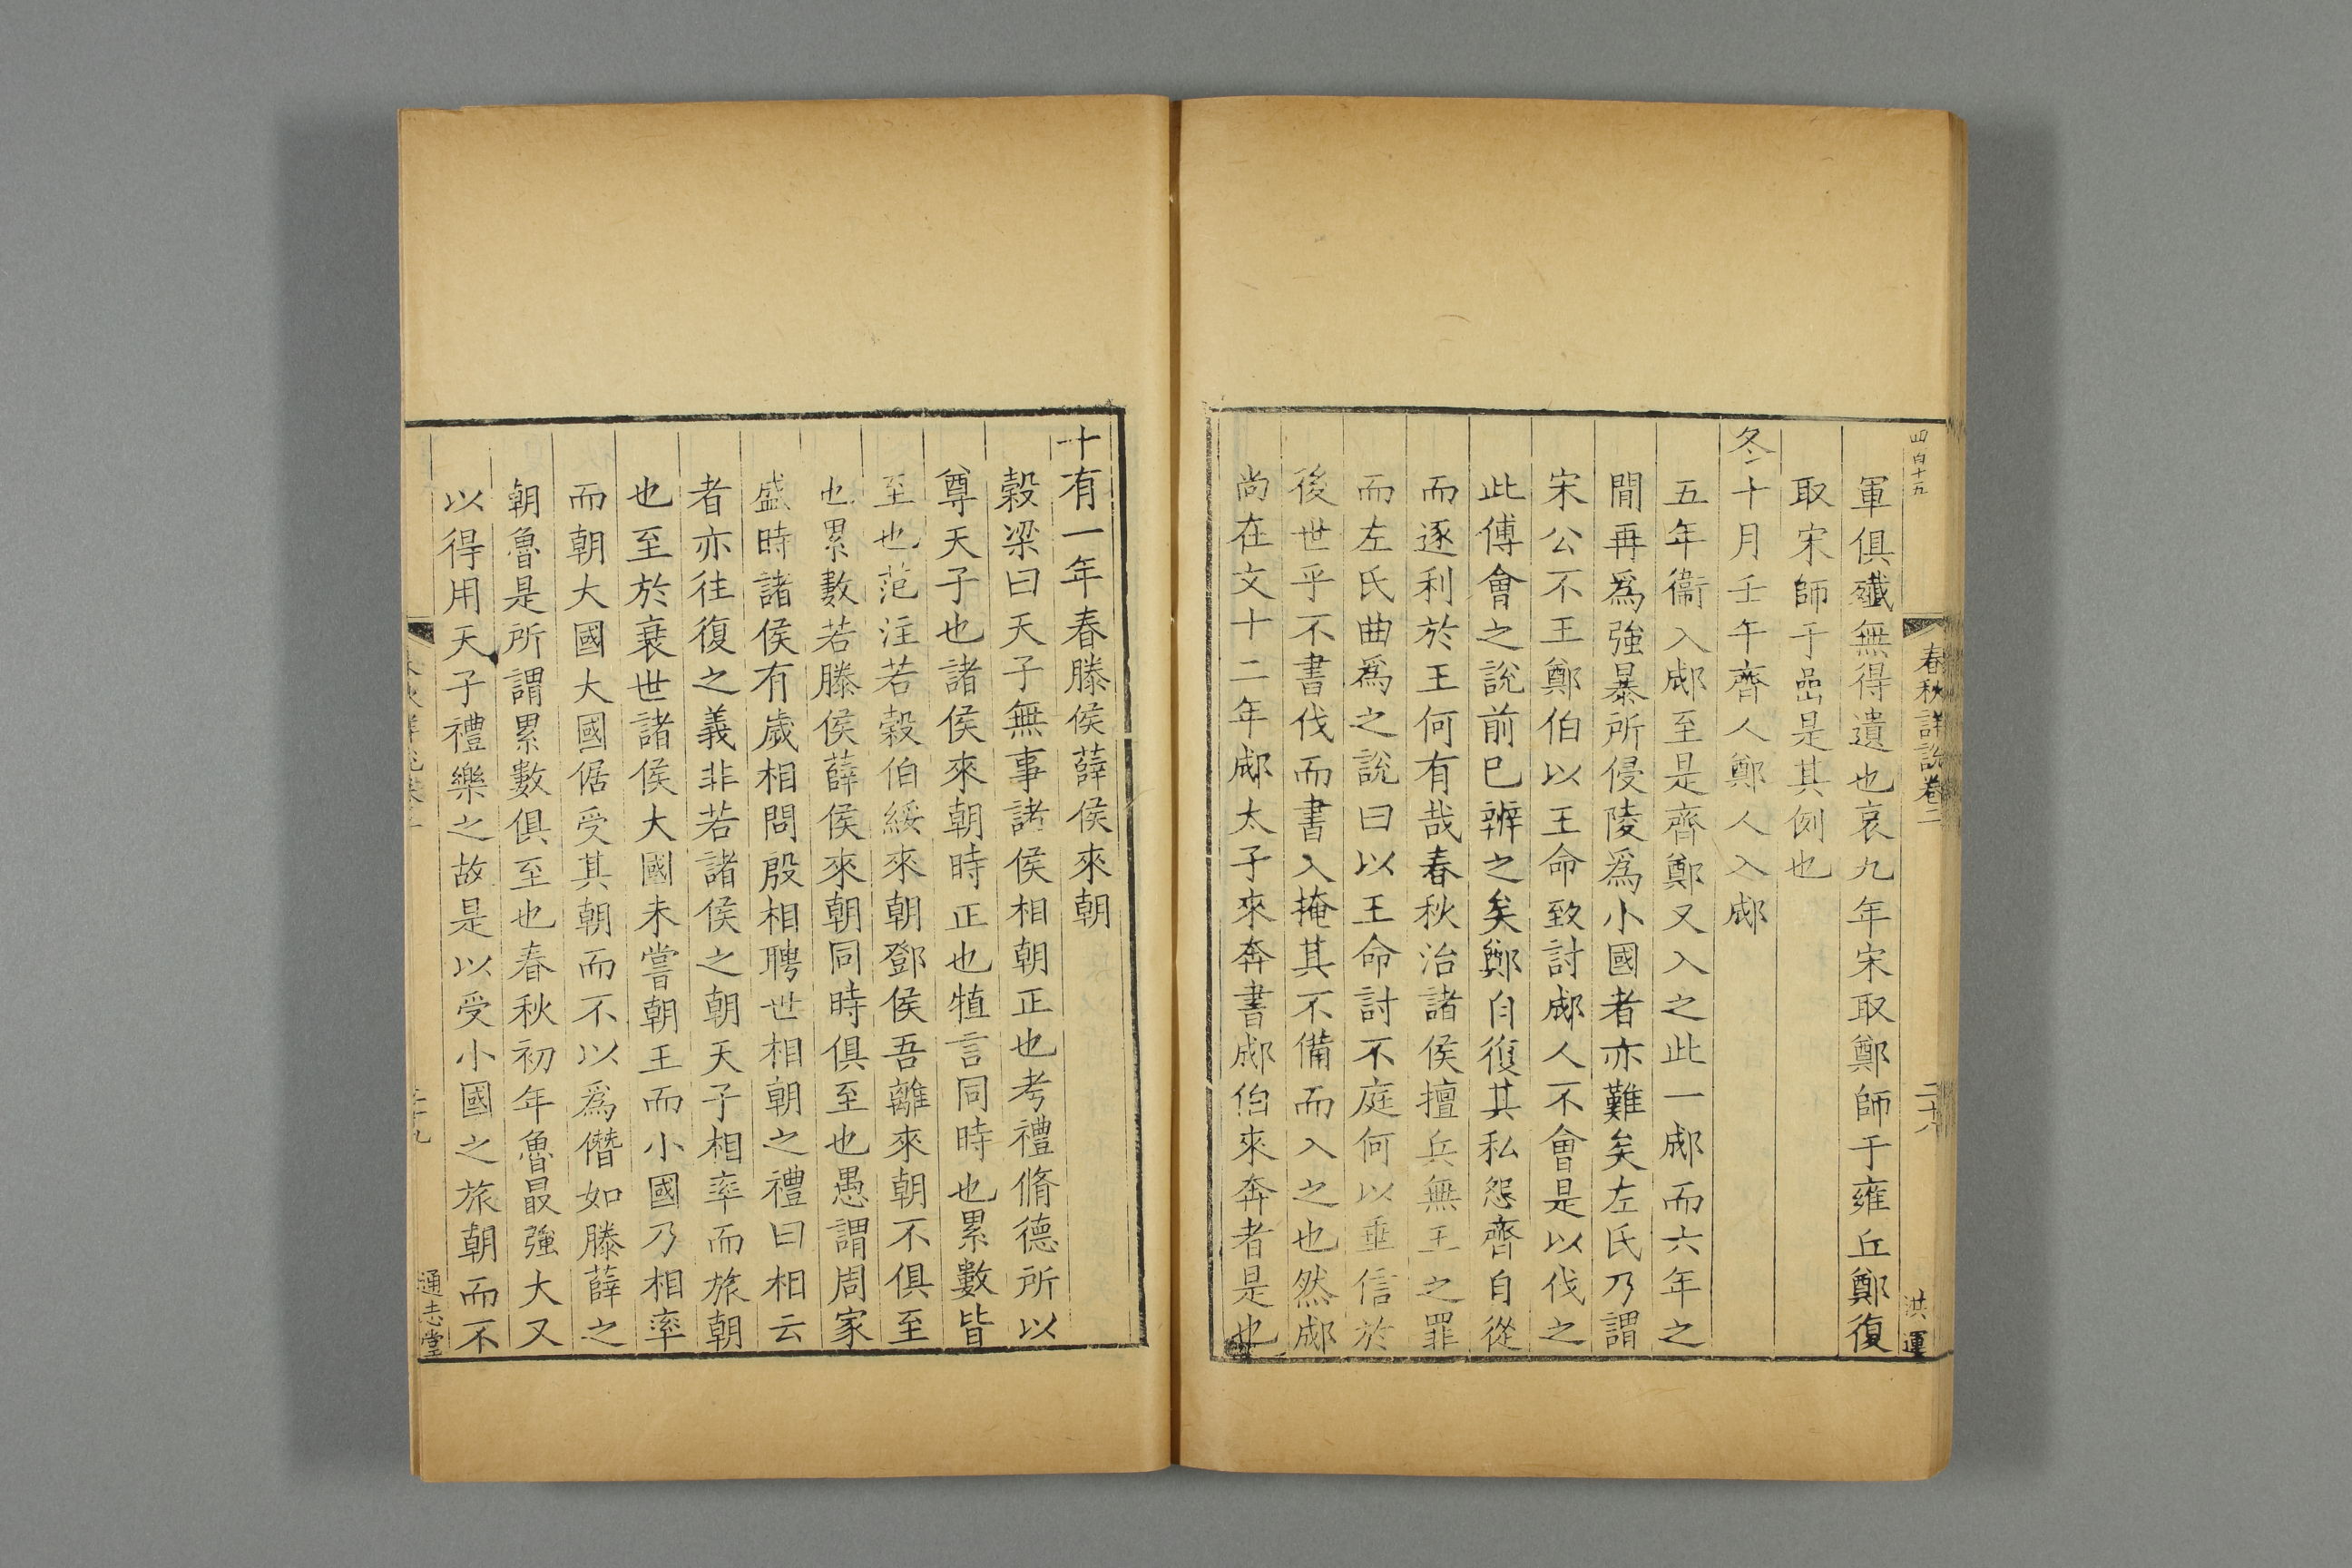 四百十五
春秋詳說卷二
二十八
洪運
軍俱殲無得遺也哀九年宋取鄭師于雍丘鄭復
取宋師于嵒是其例也
冬十月壬午齊人鄭人入郕
五年衞入郕至是齊鄭又入之此一郕而六年之
間再爲強暴所侵陵爲小國者亦難矣左氏乃謂
宋公不王鄭伯以王命致討郕人不會是以伐之
此傅會之說前巳辨之矣鄭自復其私怨齊自從
而逐利於王何有哉春秋治諸侯擅兵無王之罪
而左氏曲爲之說曰以王命討不庭何以垂信於
後世乎不書伐而書入掩其不備而入之也然郕
尚在文十二年郕太子來奔書郕伯來奔者是也
十有一年春滕侯薛侯來朝
穀梁曰天子無事諸侯相朝正也考禮脩德所以
尊天子也諸侯來朝時正也犆言同時也累數皆
至也范注若穀伯綏來朝鄧侯吾離來朝不俱至
也累數若滕侯薛侯來朝同時俱至也愚謂周家
盛時諸侯有歲相問殷相聘世相朝之禮曰相云
者亦往復之義非若諸侯之朝天子相率而旅朝
也至於衰世諸侯大國未嘗朝王而小國乃相率
而朝大國大國倨受其朝而不以爲僭如滕薛之
朝魯是所謂累數俱至也春秋初年魯最強大又
以得用天子禮樂之故是以受小國之旅朝而不
通志堂